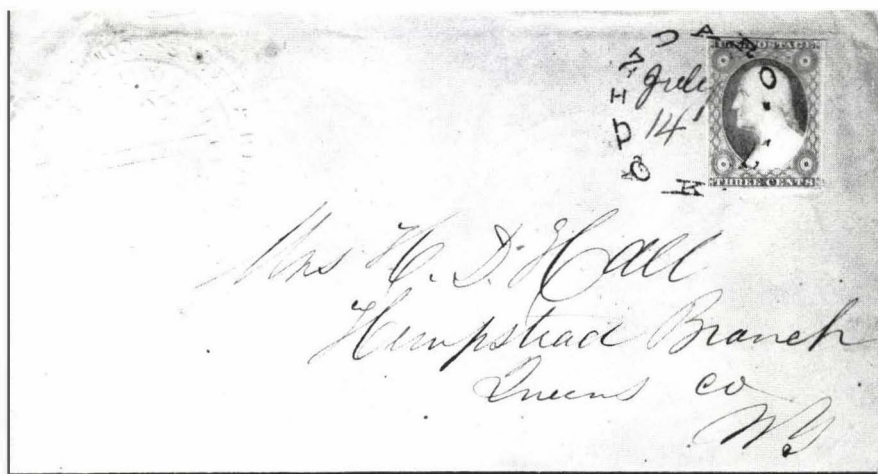 U.S. POSTAGE
THREE CENTS
July
14
Mrs H. D. Hall
Hempstead Branch
Queens Co
N.Y